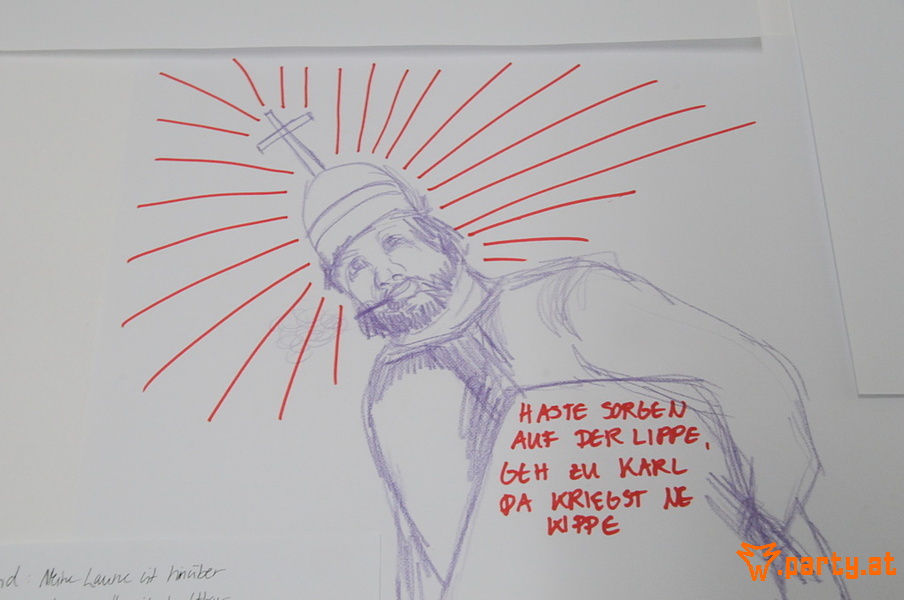 HASTE SORGEN
AUF DER LIPPE,
GEH ZU KARL
DA KRIEGST NE
KIPPE
nd: Meine Laune ist hinüber
w.party.at